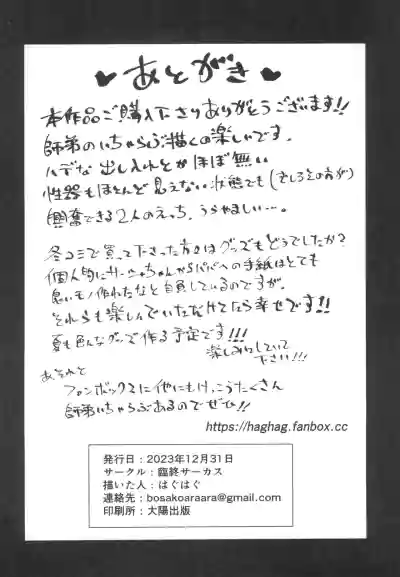 ♥あとがき♥
本作品ご購入下さりありがとうございます!!
師弟のいちゃらぶ描くの楽しいです。
ハデな出し入れとかほぼ無い
性器もほとんど見えない状態でも(むしろその方が)
興奮できる2人のえっち、うらやましい…。
冬コミで買って下さった方々はグッズもどうでしたか?
個人的にサーヴァちゃんからパパへの手紙はとても
良いモノ作れたなと自負しているのですが。
それらも楽しんでいただけてたら幸せです!!
夏も色んなグッズ作る予定です!!!
楽しみにしていて
下さい!!!
あそれと
ファンボックスに他にもけっこうたくさん
師弟いちゃらぶあるのでぜひ!!
https://haghag.fanbox.cc
発行日:2023年12月31日
サークル:臨終サーカス
描いた人:はぐはぐ
連絡先:bosakoaraara@gmail.com
印刷所:大陽出版